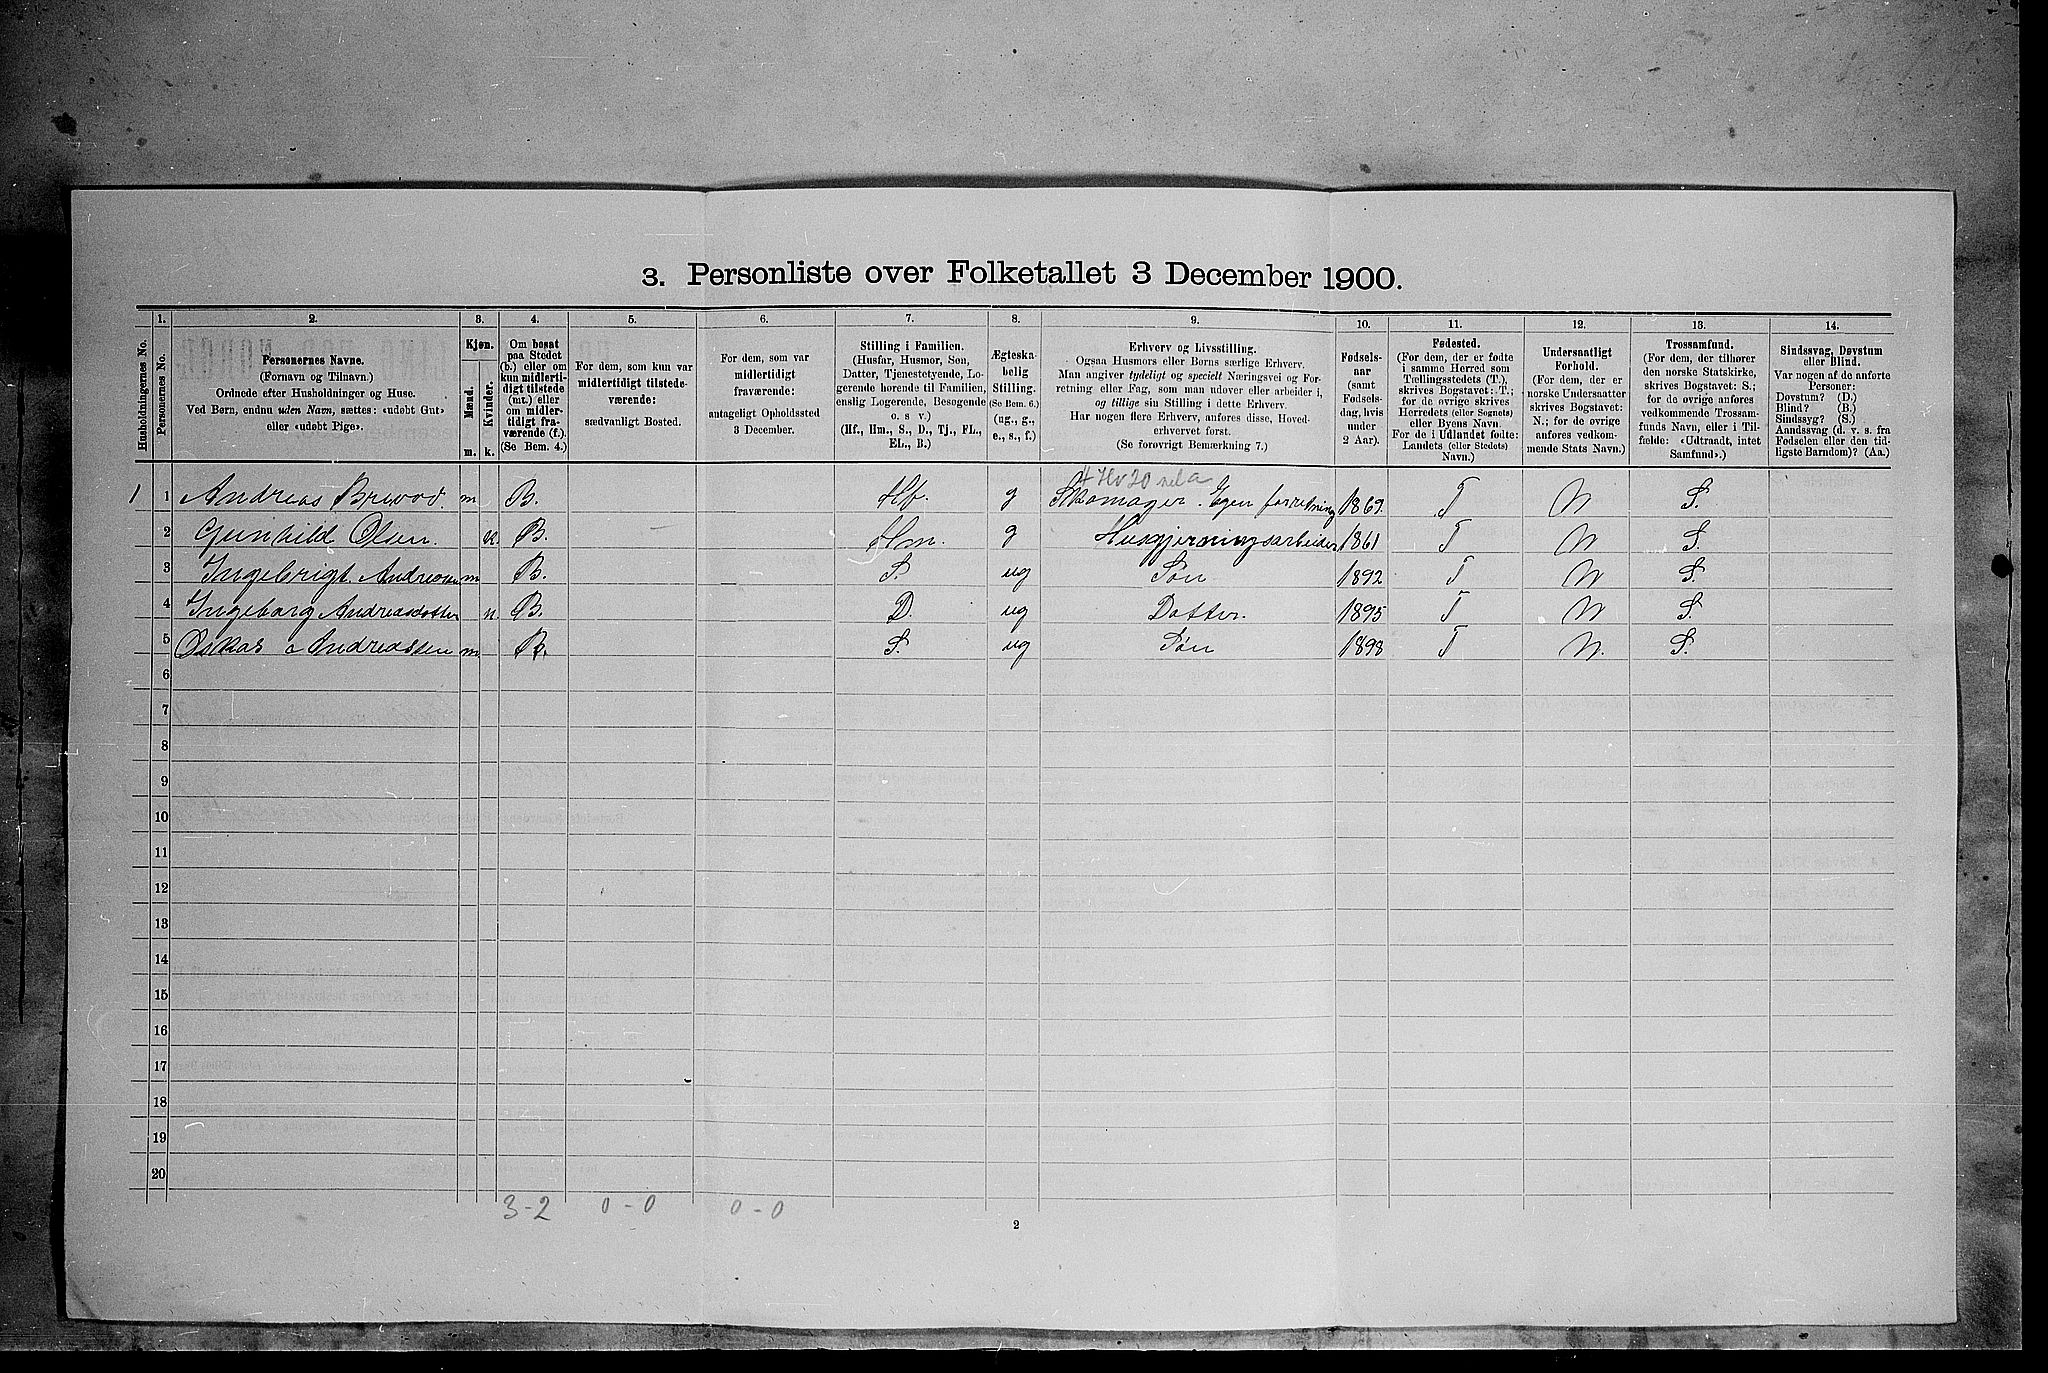 3. Personliste over Folketallet 3 December 1900.
1. 2. 3. 4. 5. 6. 7. 8. 9. 10. 11. 12. 13. 14.
Husholdningernes No.
Personernes No.
Personernes Navne.
(Fornavn og Tilnavn.)
Ordnede efter Husholdninger og Huse.
Ved Børn, endnu uden Navn, sættes: «udøbt Gut»
eller «udøbt Pige».
Kjøn.
Mænd.
Kvinder.
m. k.
Om bosat
paa Stedet
(b.) eller om
kun midlerti-
digt tilstede
(mt.) eller
om midler-
tidigt fra-
værende (f.).
(Se Bem. 4.)
For dem, som kun var
midlertidigt tilstede-
værende:
sædvanligt Bosted.
For dem, som var
midlertidigt
fraværende:
antageligt Opholdssted
3 December.
Stilling i Familien.
(Husfar, Husmor, Søn,
Datter, Tjenestetyende, Lo-
gerende hørende til Familien,
enslig Logerende, Besøgende
o. s v.)
(Hf., Hm., S., D., Tj., FL.,
EL., B.)
Ægteska-
belig
Stilling.
(Se Bem. 6.)
(ug., g.,
e., s., f.)
Erhverv og Livsstilling.
Ogsaa Husmors eller Børns særlige Erhverv.
Man angiver tydeligt og specielt Næringsvei og For-
retning eller Fag, som man udøver eller arbeider i,
og tillige sin Stilling i dette Erhverv.
Har nogen flere Erhverv, anføres disse, Hoved-
erhvervet først.
(Se forøvrigt Bemærkning 7.)
Fødsels-
aar
(samt
Fødsels-
dag, hvis
under
2 Aar).
Fødested.
(For dem, der er fødte
i samme Herred som
Tællingsstedets (T.),
skrives Bogstavet: T.;
for de øvrige skrives
Herredets (eller Sognets)
eller Byens Navn.
For de i Udlandet fødte:
Landets (eller Stedets)
Navn.)
Undersaatligt
Forhold.
(For dem, der er
norske Undersaatter
skrives Bogstavet:
N.; for de øvrige
anføres vedkom-
mende Stats Navn.)
Trossamfund.
(For dem, der tilhører
den norske Statskirke,
skrives Bogstavet: S.;
for de øvrige anføres
vedkommende Trossam-
funds Navn, eller i Til-
fælde: «Udtraadt, intet
Samfund».)
Sindssvag, Døvstum
eller Blind.
Var nogen af de anførte
Personer:
Døvstum? (D.)
Blind? (B.)
Sindssyg? (S.)
Aandssvag (d. v. s. fra
Fødselen eller den tid-
ligste Barndom)? (Aa.)
1 1 Andreas Brevod. m B. Hf. g Skomager. Egen forretning 1869. T N S.
2 Gunhild Olsen. k. B. Hm. g Husgjerningsarbeider 1861 T N S.
3 Ingebrigt m B. S. ug Søn 1892 T N S.
4 Ingeborg Andreasdatter k. B. D. ug Datter. 1895 T N S.
5 Oskar Andreassen m. B. S. ug Søn 1898 T N. S.
6
7
8
9
10
11
12
13
14
15
16
17
18
19
20
3-2 0-0 0-0
2